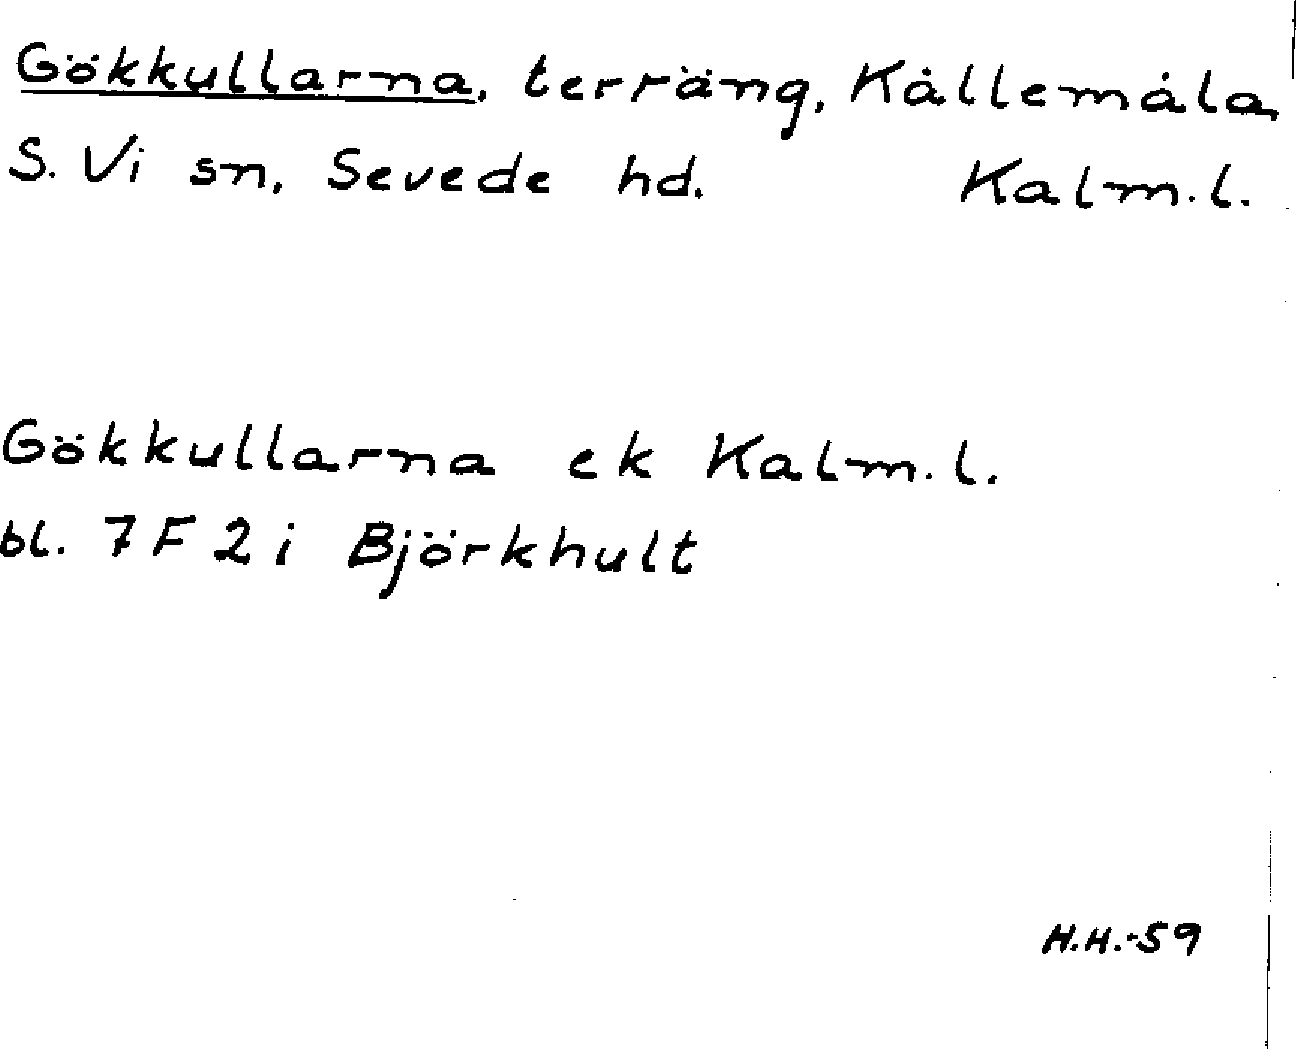 Gökkullarna, terräng, Kållemåla,
S. Vi sn, Sevede hd. Kalm.l.
Gökkullarna ek Kalm.l.
bl. 7 F 2 i Björkhult
H.H.-59